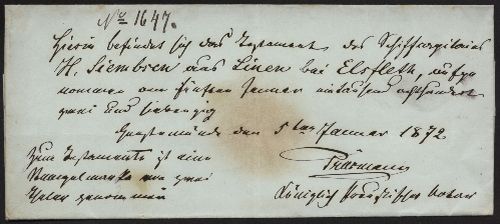 No 1647.
Hierin befindet sich das Testament des Schiffscapitains
H. Siembsen aus Lienen bei Elsfleth, aufge
nommen am fünften Januar eintausend achthundert
zwei und siebenzig
Geestemünde den 5ten Januar 1872
Zum Testamente ist eine
Stempelmarke von zwei
Thaler genommen
Königlich Preußischer Notar